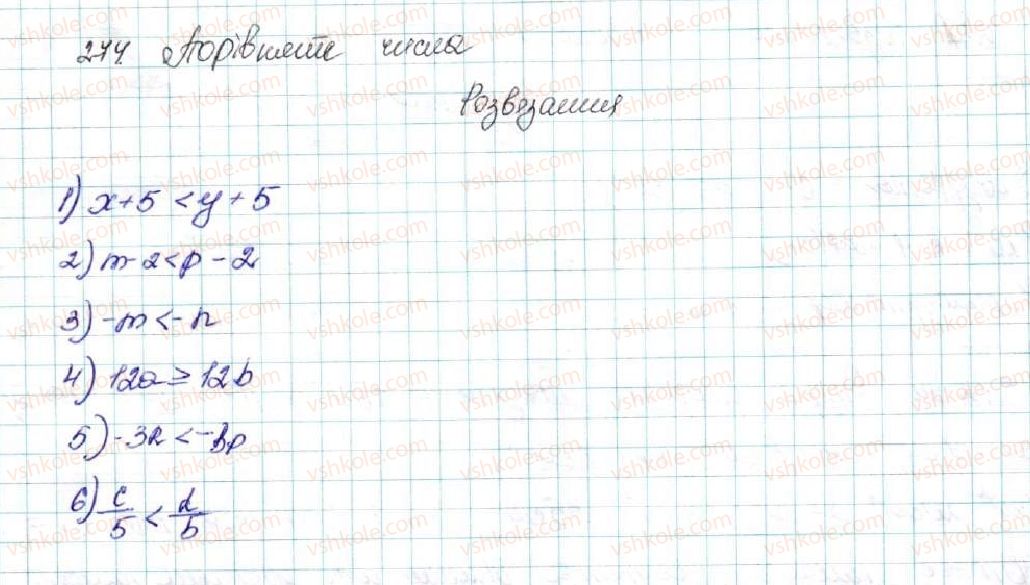 274 Порівняти числа
Розв'язання
1) x+5 < y+5
2) m-2 < p-2
3) -m < -n
4) 12a ≥ 12b
5) -3k < -3p
6) c/5 < d/5
vshkole.com